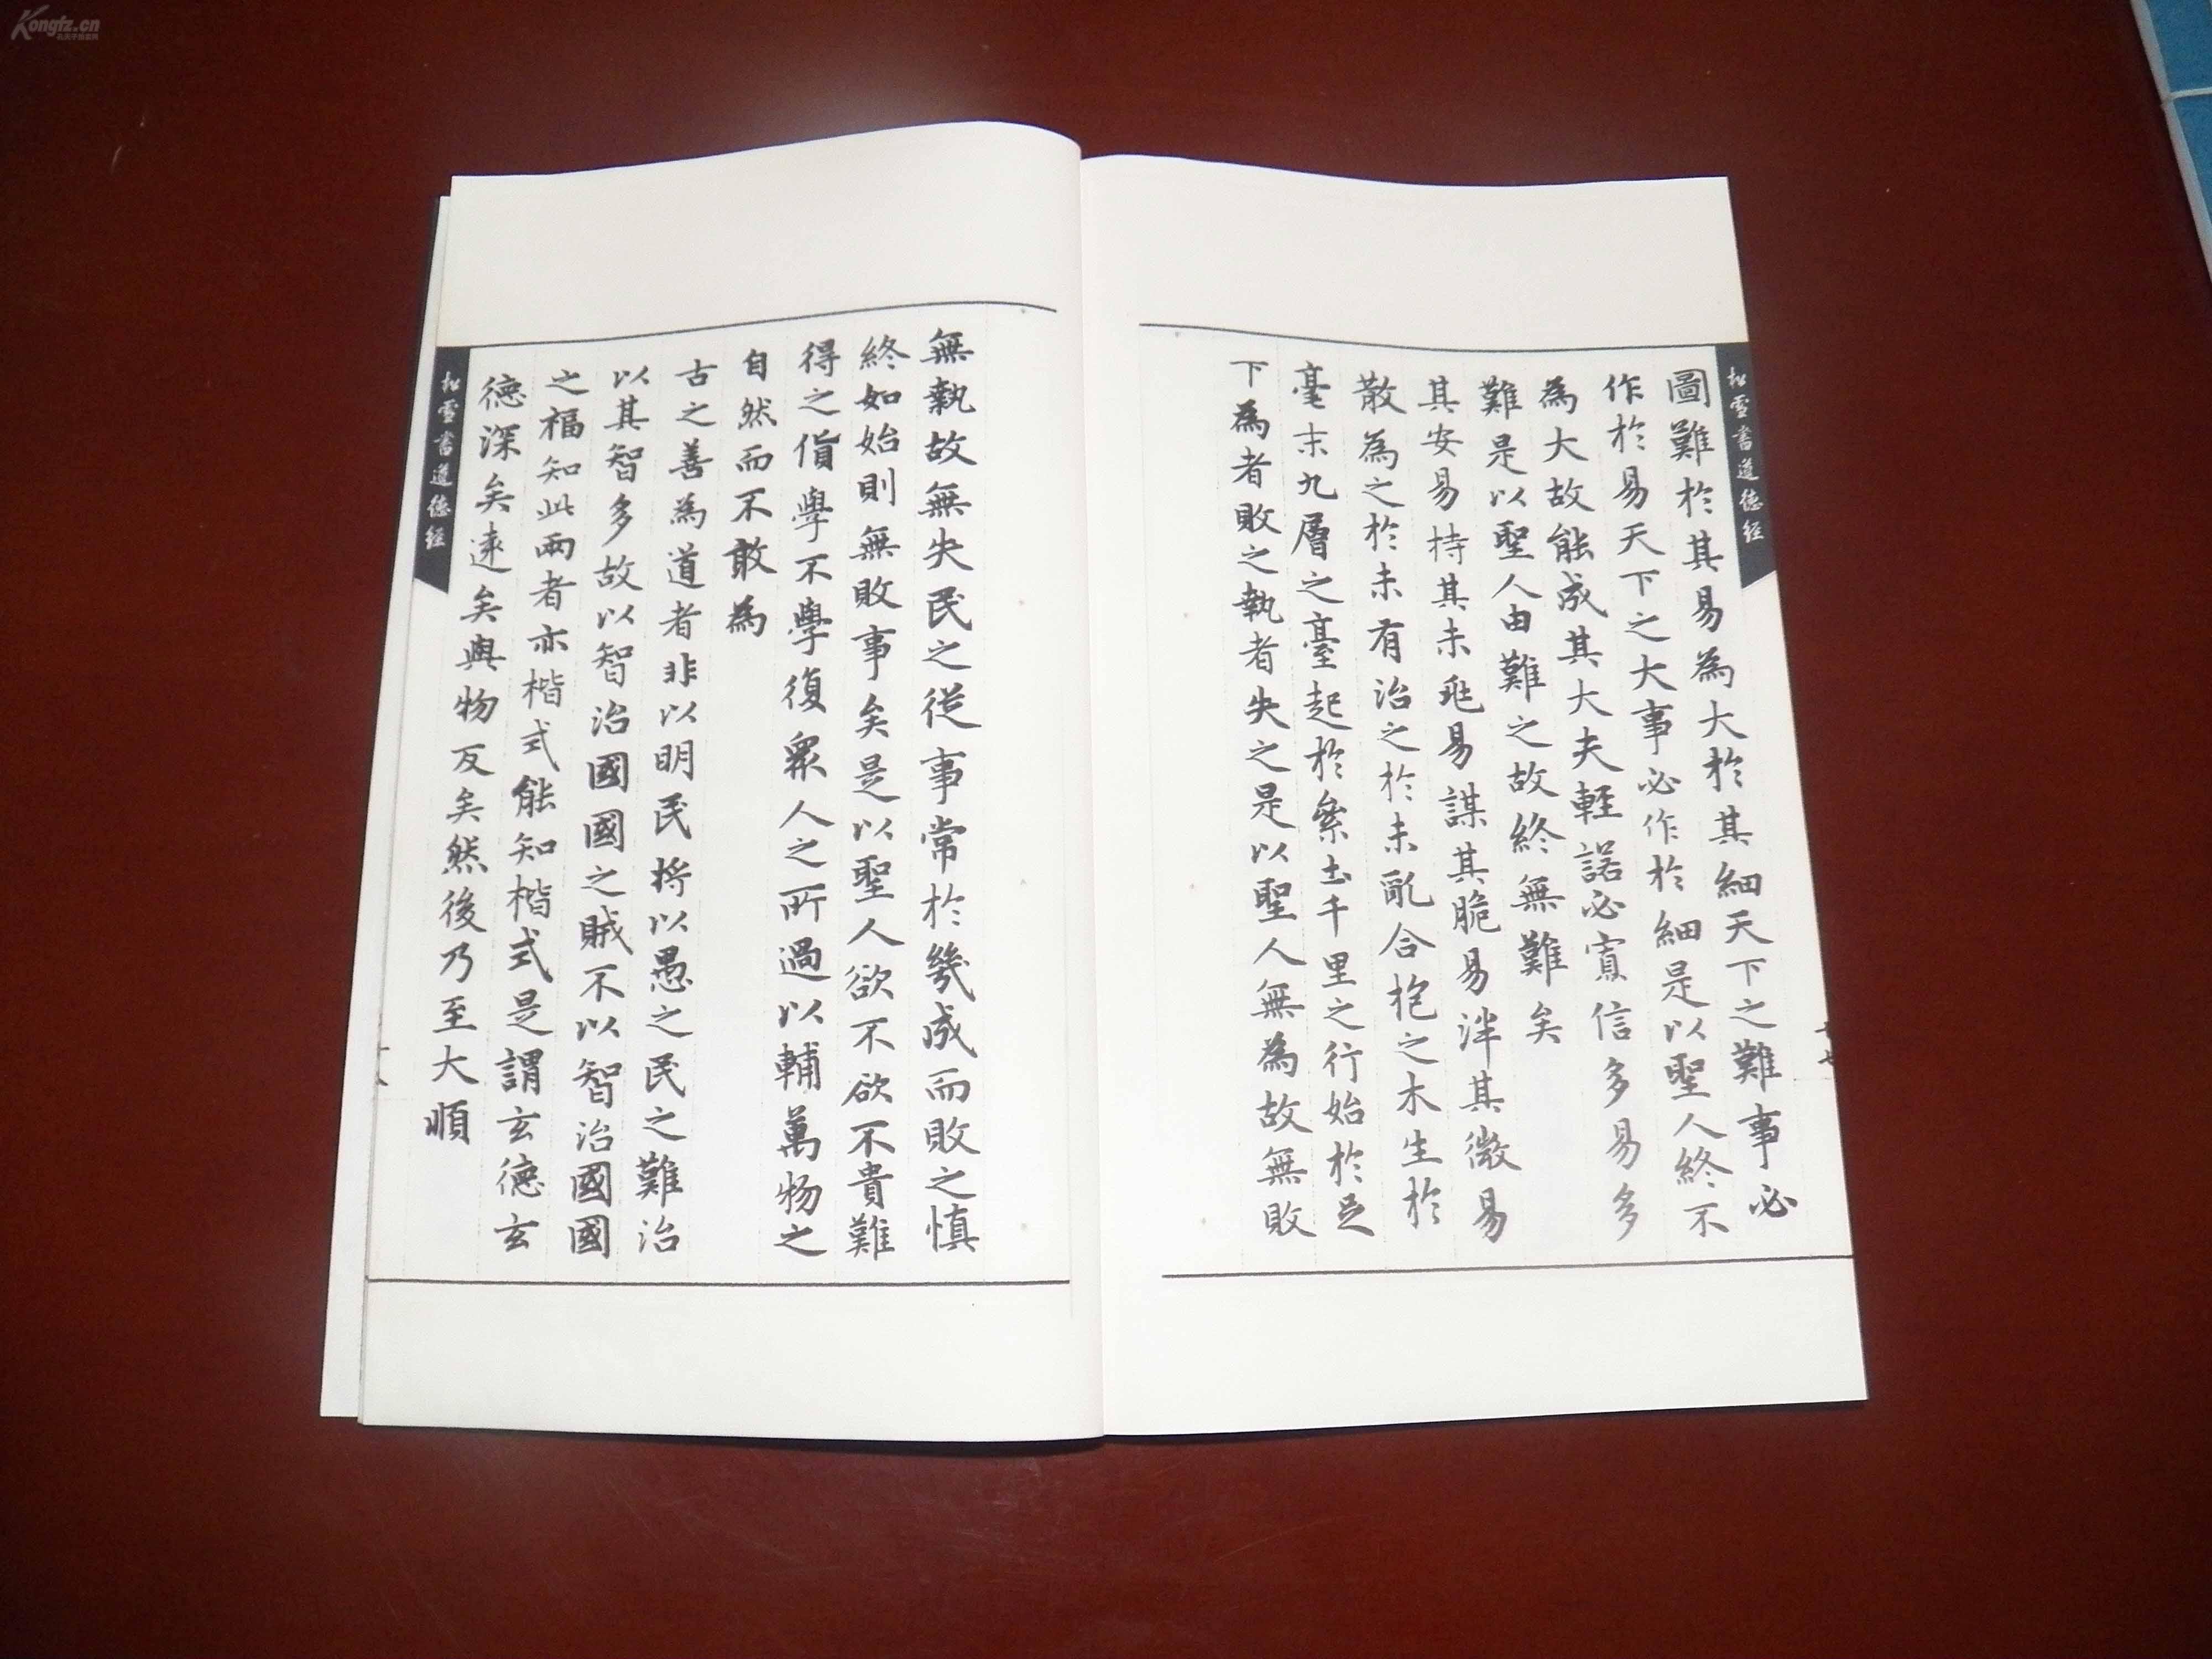 Kongfz.cn
松雪書道德經
圖難於其易為大於其細天下之難事必
作於易天下之大事必作於細是以聖人終不
為大故能成其大夫輕諾必寡信多易多
難是以聖人由難之故終無難矣
其安易持其未兆易謀其脆易泮其微易
散為之於未有治之於未亂合抱之木生於
毫末九層之臺起於絫土千里之行始於足
下為者敗之執者失之是以聖人無為故無敗
無執故無失民之從事常於幾成而敗之慎
終如始則無敗事矣是以聖人欲不欲不貴難
得之貨學不學復眾人之所過以輔萬物之
自然而不敢為
古之善為道者非以明民將以愚之民之難治
以其智多故以智治國國之賊不以智治國國
之福知此兩者亦楷式能知楷式是謂玄德玄
德深矣遠矣與物反矣然後乃至大順
松雪書道德經